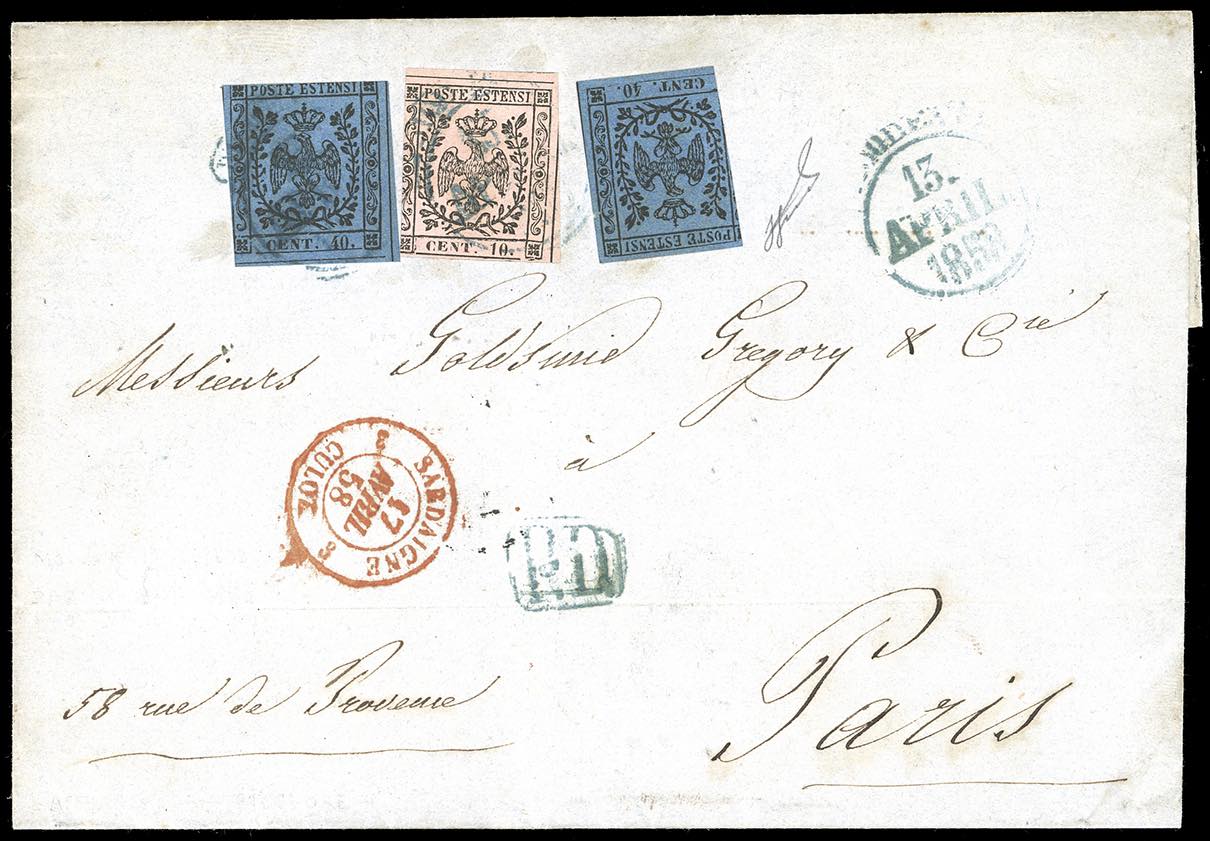 POSTE ESTENSI
CENT. 40.
POSTE ESTENSI
CENT. 10.
CENT. 40.
POSTE ESTENSI
13.
AVRIL
1858
Messieurs Goldsmid Gregory & Cie
à
SARDAIGNE
2 CULOZ 2
17
AVRIL
58
P.D.
Paris
58 rue de Provence